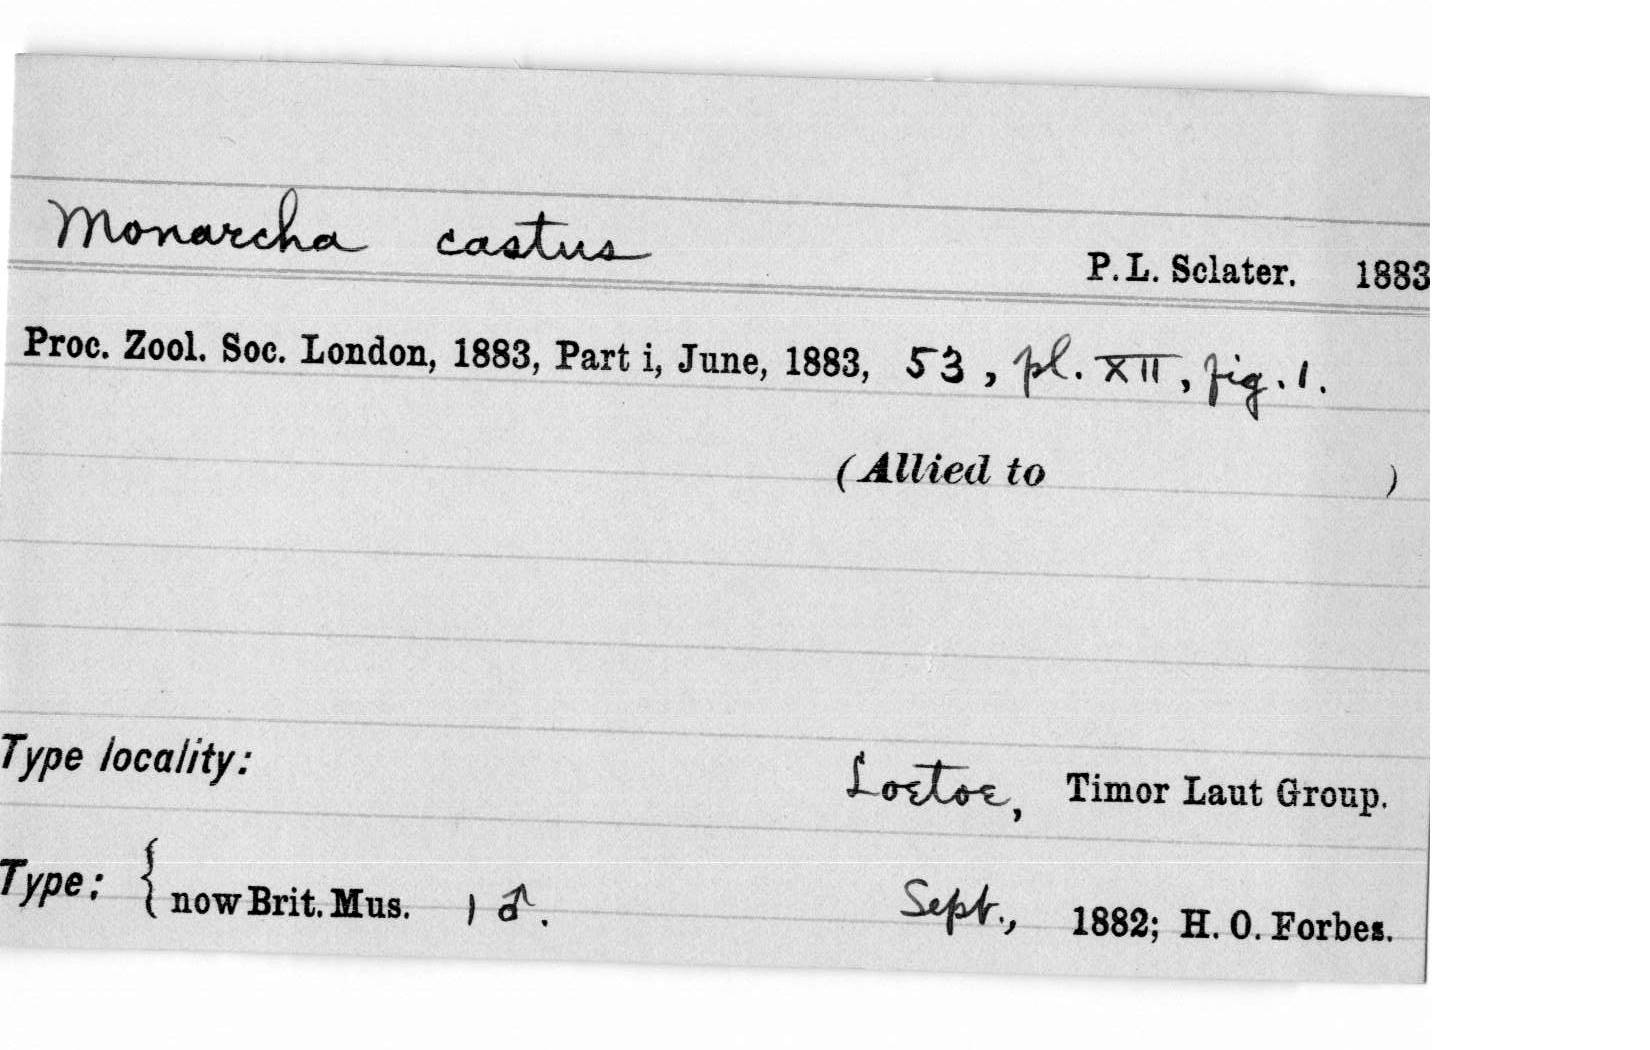 Monarcha castus
P. L. Sclater. 1883
Proc. Zool. Soc. London, 1883, Part i, June, 1883, 53, pl. XII, fig. 1.
(Allied to )
Type locality: Loetoe, Timor Laut Group.
Type: { now Brit. Mus. 1 ♂. Sept., 1882; H. O. Forbes.